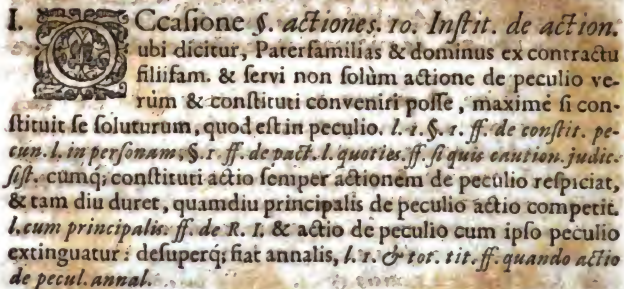 I. OCcaſione §. actiones. 10. Inſtit. de action.
ubi dicitur, Paterfamilias & dominus ex contractu
filiifam. & ſervi non ſolùm actione de peculio ve-
rùm & conſtituti conveniri poſſe, maximè ſi con-
ſtituit ſe ſoluturum, quod eſt in peculio. l. 1. §. 1. ff. de conſtit. pe-
cun. l. in perſonam, §. 1 ff. de pact. l. quoties. ff. ſi quis caution. judic.
ſiſt. cumq; conſtituti actio ſemper actionem de peculio reſpiciat,
& tam diu duret, quamdiu principalis de peculio actio competit.
l. cum principalis. ff. de R. I. & actio de peculio cum ipſo peculio
extinguatur: deſuperq; fiat annalis, l. 1. & tot. tit. ff. quando actio
de pecul. annal.